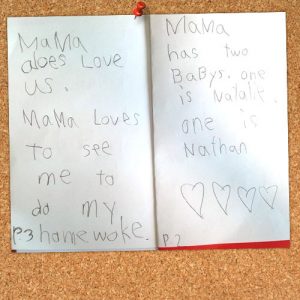 MaMa
does Love
us.
MaMa Loves
to see
me to
do my
homewoke.
P.3
MaMa
has two
BaBys. one
is Natalie.
one is
Nathan
P.2